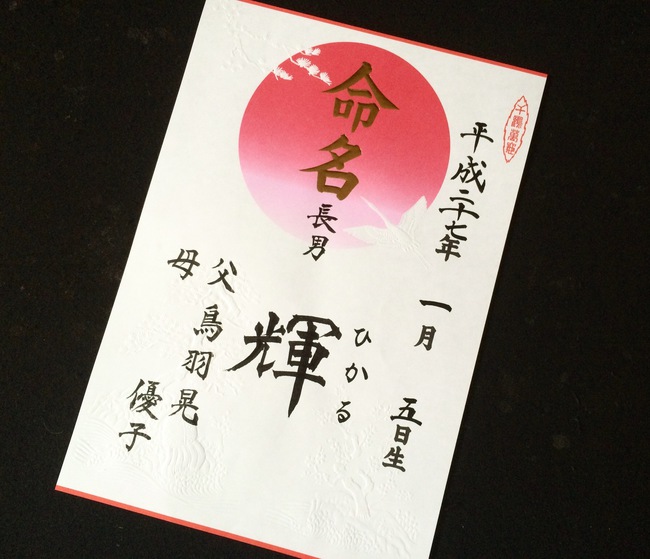 平成二十七年
一月
五日生
命名
長男
ひかる
輝
父 鳥羽晃
母 優子